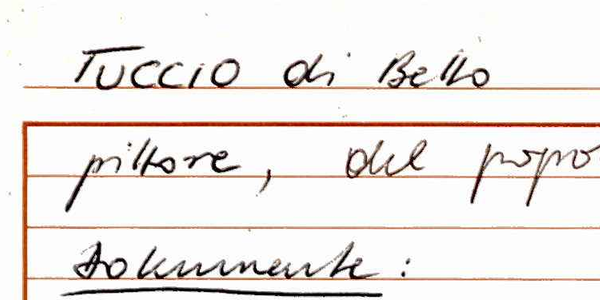 Tuccio di Bello
pittore, del popo
Dokumente: